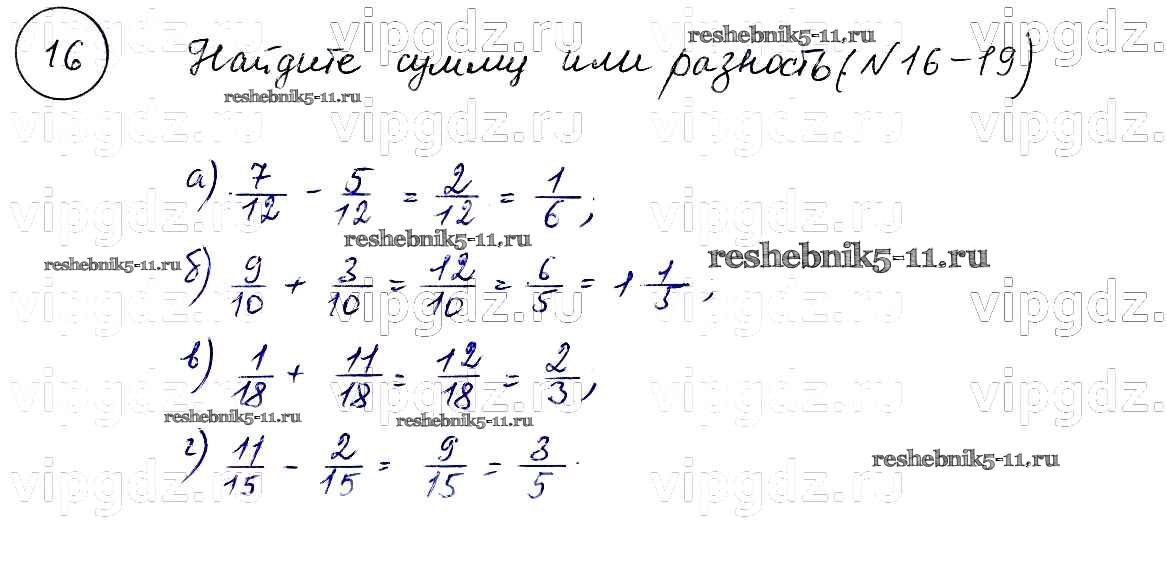 16 Найдите сумму или разность (№16-19)
а) 7/12 - 5/12 = 2/12 = 1/6;
б) 9/10 + 3/10 = 12/10 = 6/5 = 1 1/5,
в) 1/18 + 11/18 = 12/18 = 2/3;
г) 11/15 - 2/15 = 9/15 = 3/5.
vipgdz.ru
reshebnik5-11.ru